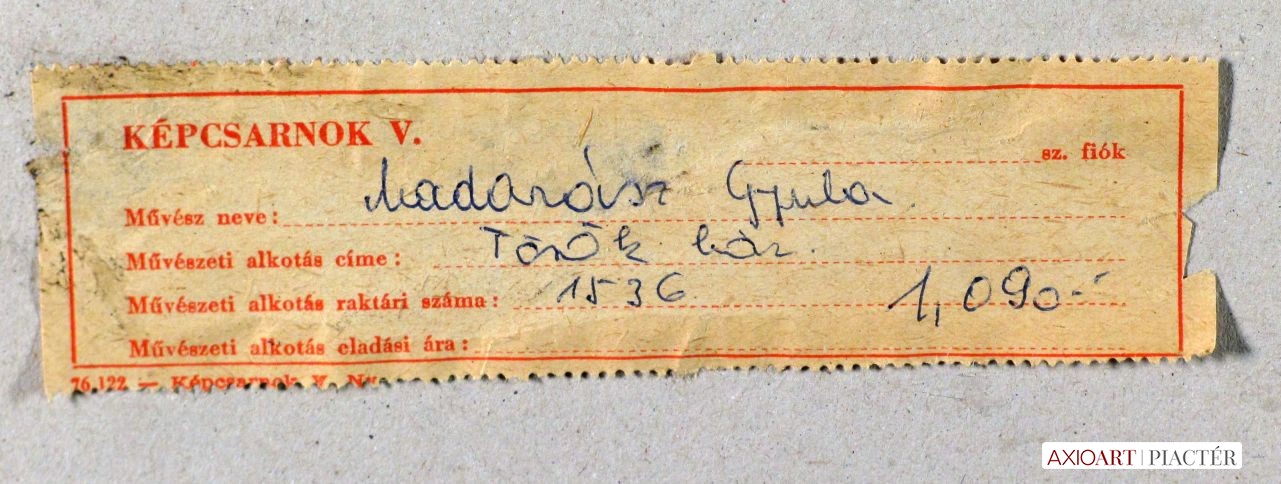 KÉPCSARNOK V.
sz. fiók
Művész neve: Madarász Gyula
Művészeti alkotás címe: Török ház.
Művészeti alkotás raktári száma: 1536 1,090.-
Művészeti alkotás eladási ára:
76.122 — Képcsarnok V. Ny.
AXIOART | PIACTÉR